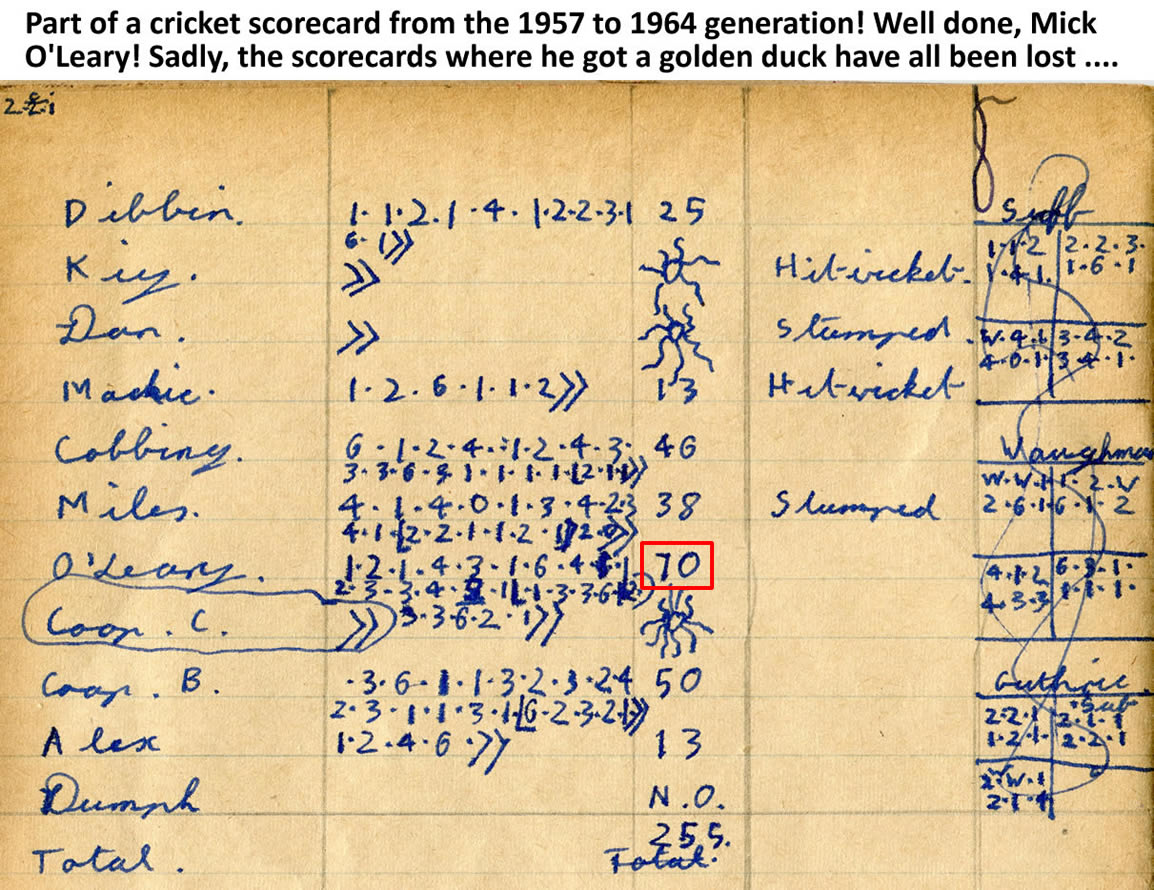 Part of a cricket scorecard from the 1957 to 1964 generation! Well done, Mick
O'Leary! Sadly, the scorecards where he got a golden duck have all been lost ....
Dibbin. 1. 1.2.1.4.1.2.2.3.1 25
6.1>>
Kiy. >> Hit-wicket.
Dan. >> Stumped
Mackie. 1.2.6.1.1.2>> 13 Hit-wicket
Cobbing. 6.1.2.4.1.2.4.3. 46
Miles. 4.1.4.0.1.3.4.2.3 38 Slumped
O'Leary. 1.2.1.4.3.1.6.4 70
Coop. C. >> 3.3.6.2.1>>
Coop. B. .3.6.1.1.3.2.3.2.4 50
2.3.1.1.3.1.6.2.3.2.1>>
Alex 1.2.4.6.>> 13
Dumph N.O.
255.
Total. Total.
Suff
1.1.2 2.2.3.
1.4.1. 1.6.1
W.4.1 3.4.2
4.0.1. 3.4.1.
Waughman
W.W.1 1.2.W
2.6.1 6.1.2
4.1.2 6.3.1.
4.3.3 1.1.1.
Guthrie
Sub
2.2.1 2.1.1
1.2.1. 2.2.1
2.W.1
2.1.4